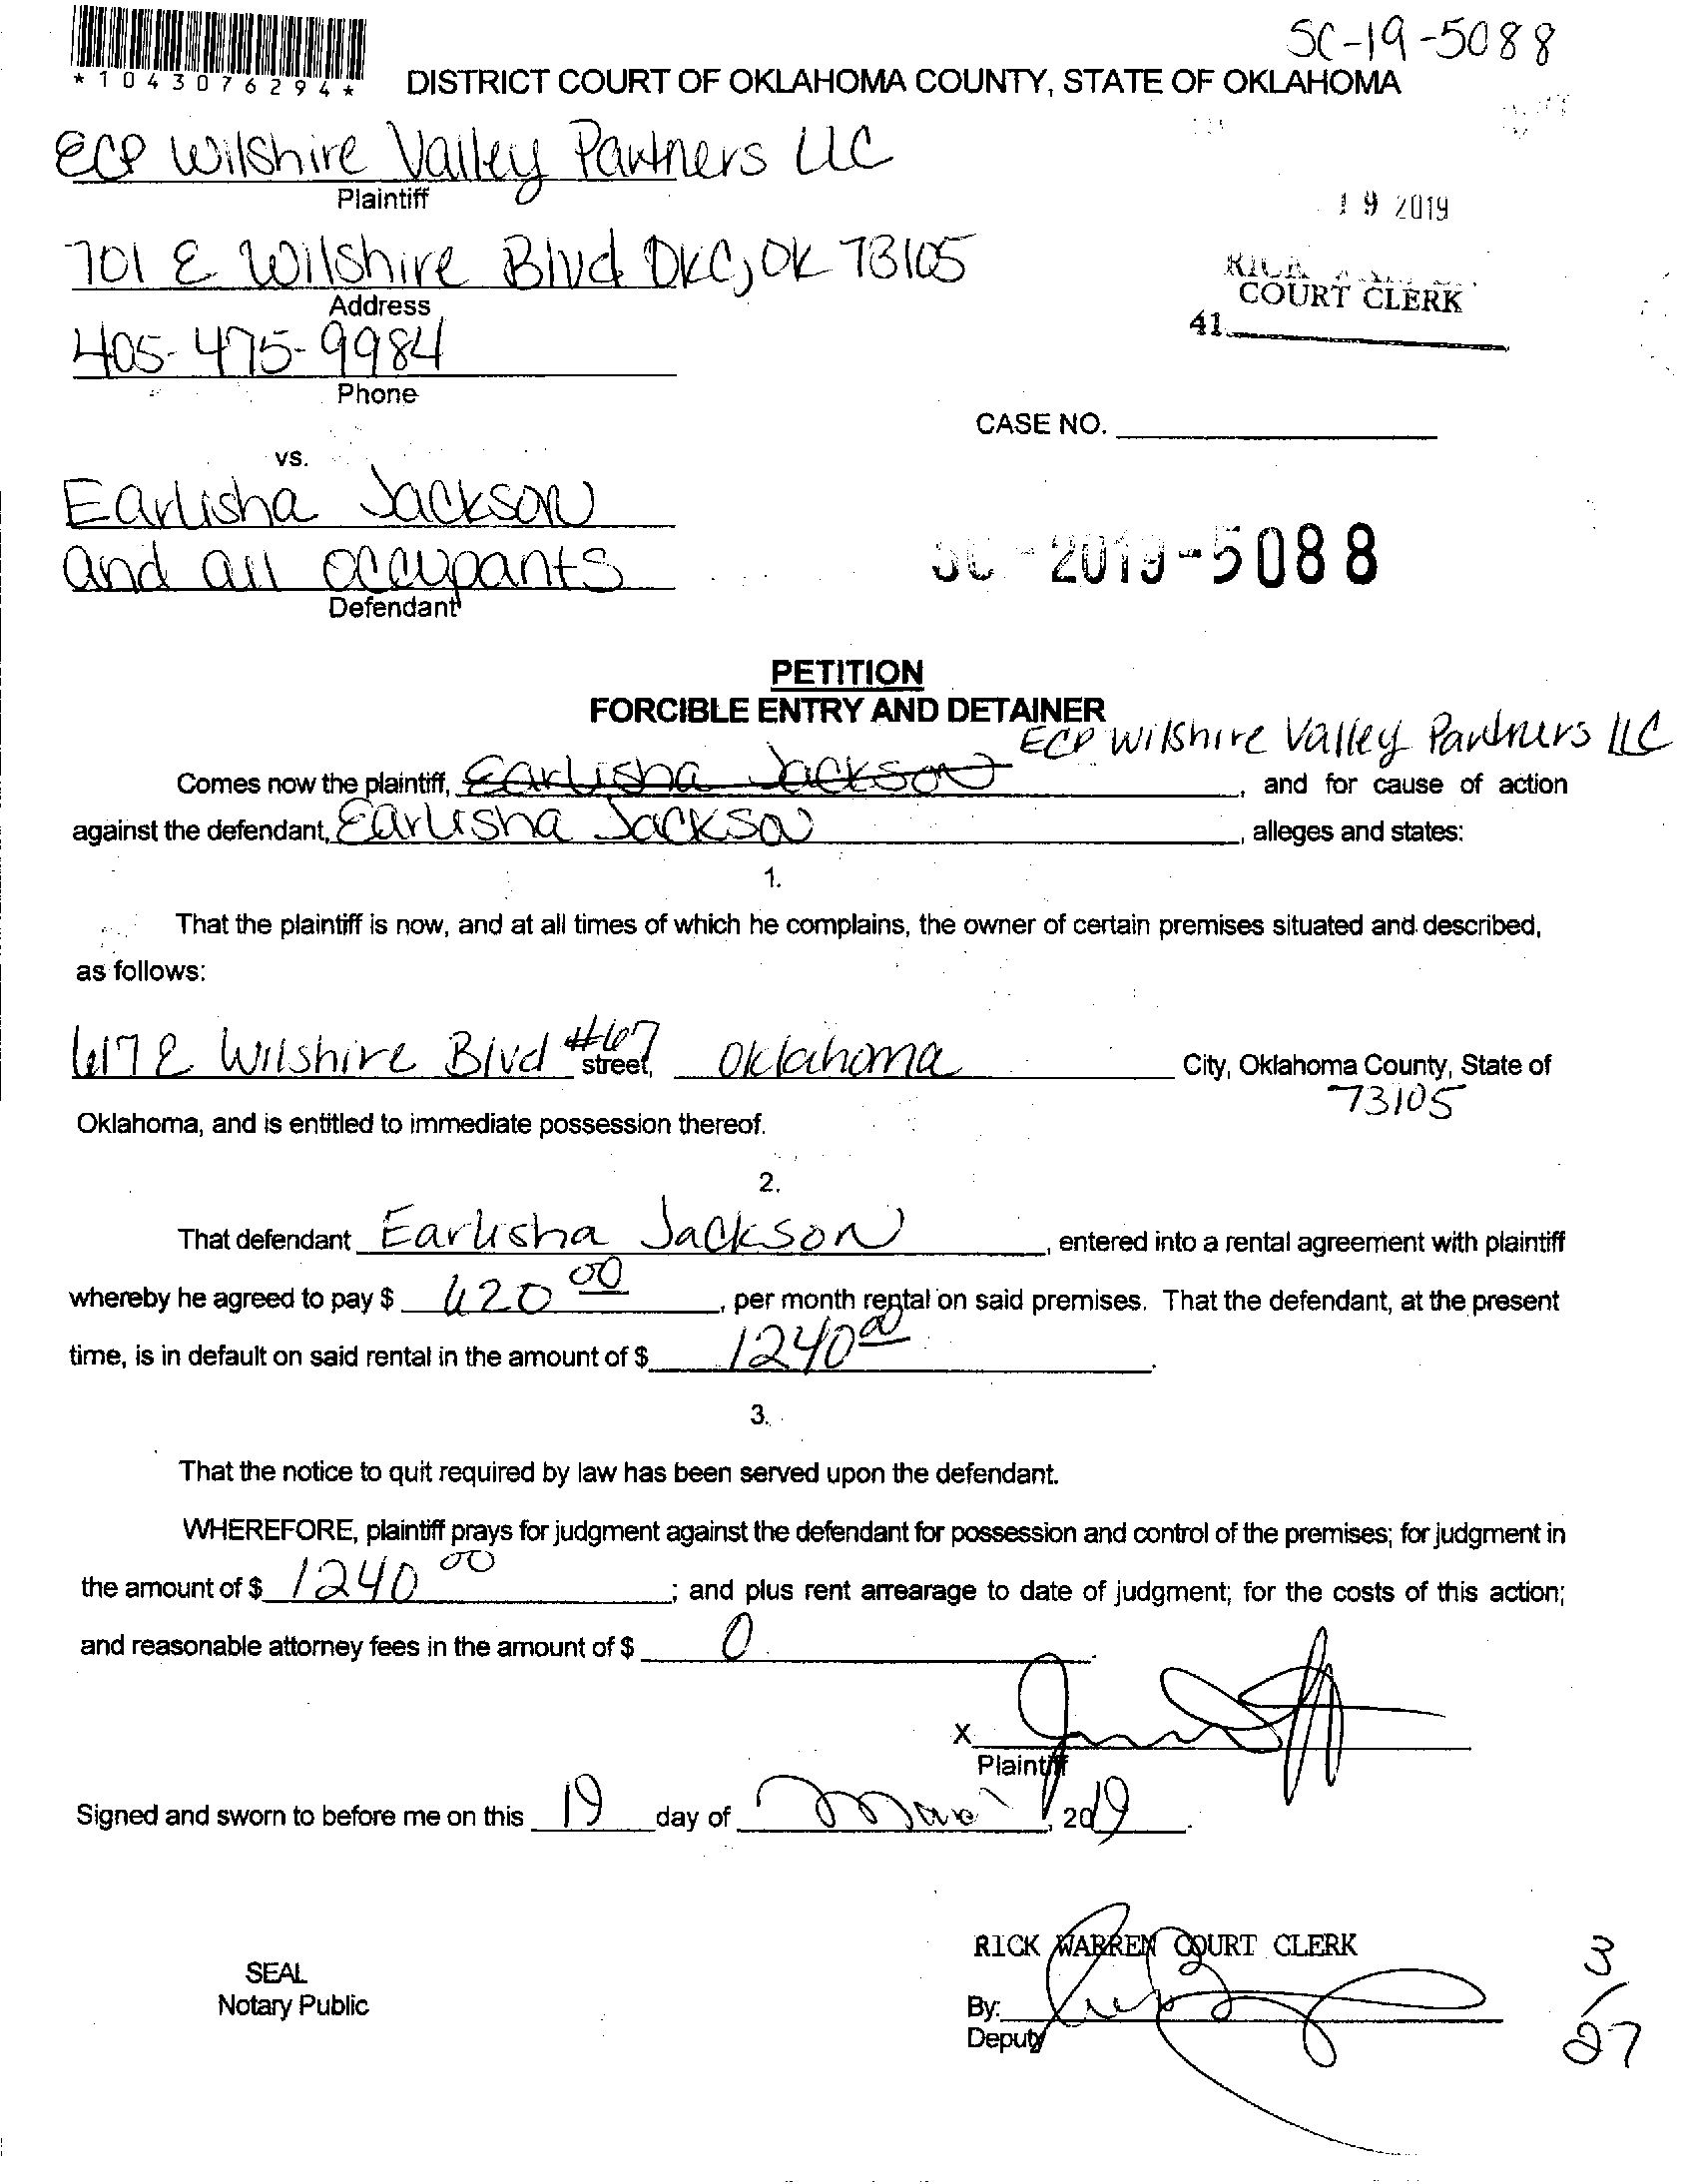 SC-19-5088
*1043076294*
DISTRICT COURT OF OKLAHOMA COUNTY, STATE OF OKLAHOMA
ECP Wilshire Valley Partners LLC
Plaintiff
19 2019
701 E Wilshire Blvd OKC, OK 73105
Address
RICK
COURT CLERK
41
405-475-9984
Phone
CASE NO.
vs.
Earlisha Jackson
and all occupants
Defendant
SC-2019-5088
PETITION
FORCIBLE ENTRY AND DETAINER
ECP Wilshire Valley Partners LLC
Comes now the plaintiff, Earlisha Jackson, and for cause of action
against the defendant, Earlisha Jackson, alleges and states:
1.
That the plaintiff is now, and at all times of which he complains, the owner of certain premises situated and described,
as follows:
617 E Wilshire Blvd #67 street, Oklahoma City, Oklahoma County, State of
73105
Oklahoma, and is entitled to immediate possession thereof.
2.
That defendant Earlisha Jackson, entered into a rental agreement with plaintiff
whereby he agreed to pay $ 620 00, per month rental on said premises. That the defendant, at the present
time, is in default on said rental in the amount of $ 1240 00.
3.
That the notice to quit required by law has been served upon the defendant.
WHEREFORE, plaintiff prays for judgment against the defendant for possession and control of the premises; for judgment in
the amount of $ 1240 00; and plus rent arrearage to date of judgment; for the costs of this action;
and reasonable attorney fees in the amount of $ 0.
X
Plaintiff
Signed and sworn to before me on this 19 day of, 2019.
RICK WARREN COURT CLERK
SEAL
Notary Public
By:
Deputy
3/27